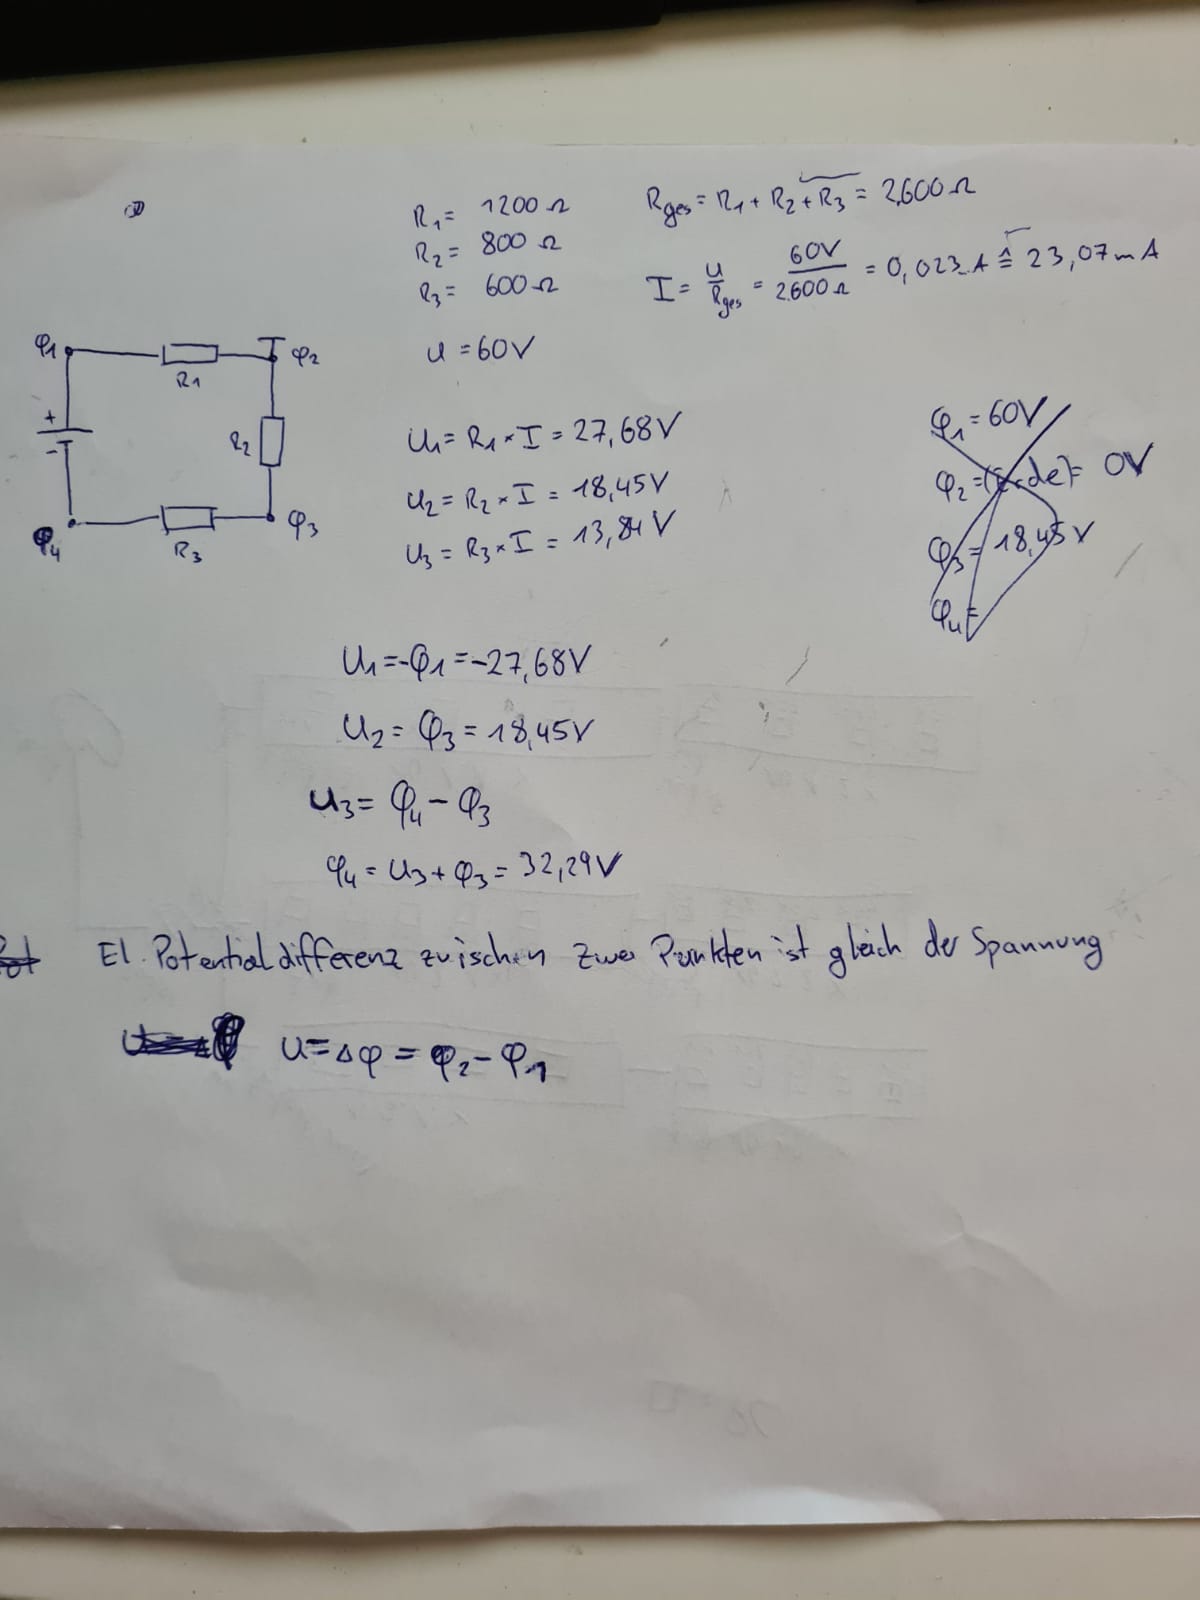 R₁ = 1200 Ω
R₂ = 800 Ω
R₃ = 600 Ω
U = 60V
Rges = R₁ + R₂ + R₃ = 2600 Ω
I = U/Rges = 60V/2600Ω = 0,023 A ≙ 23,07 mA
φ₁ R₁ φ₂
+
- R₂
φ₄ R₃ φ₃
U₁ = R₁ × I = 27,68V
U₂ = R₂ × I = 18,45V
U₃ = R₃ × I = 13,84V
φ₁ = 60V
φ₂ = = 0V
φ₃ = 18,45V
φ₄ =
U₁ = -φ₁ = -27,68V
U₂ = φ₃ = 18,45V
U₃ = φ₄ - φ₃
φ₄ = U₃ + φ₃ = 32,29V
Pot El. Potentialdifferenz zwischen zwei Punkten ist gleich der Spannung
U = Δφ = φ₂ - φ₁